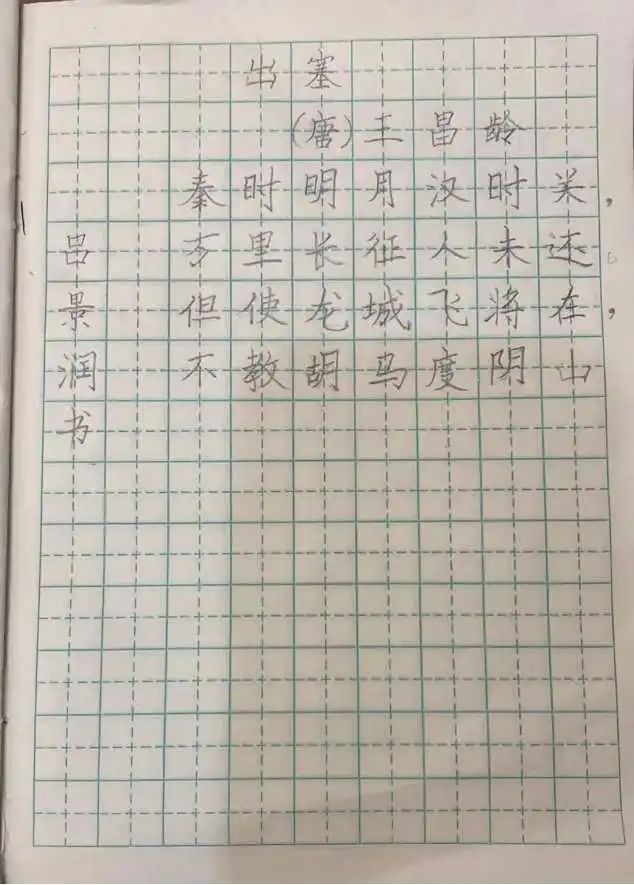 出塞
(唐)王昌龄
秦时明月汉时关，
万里长征人未还。
但使龙城飞将在，
不教胡马度阴山
吕景润书